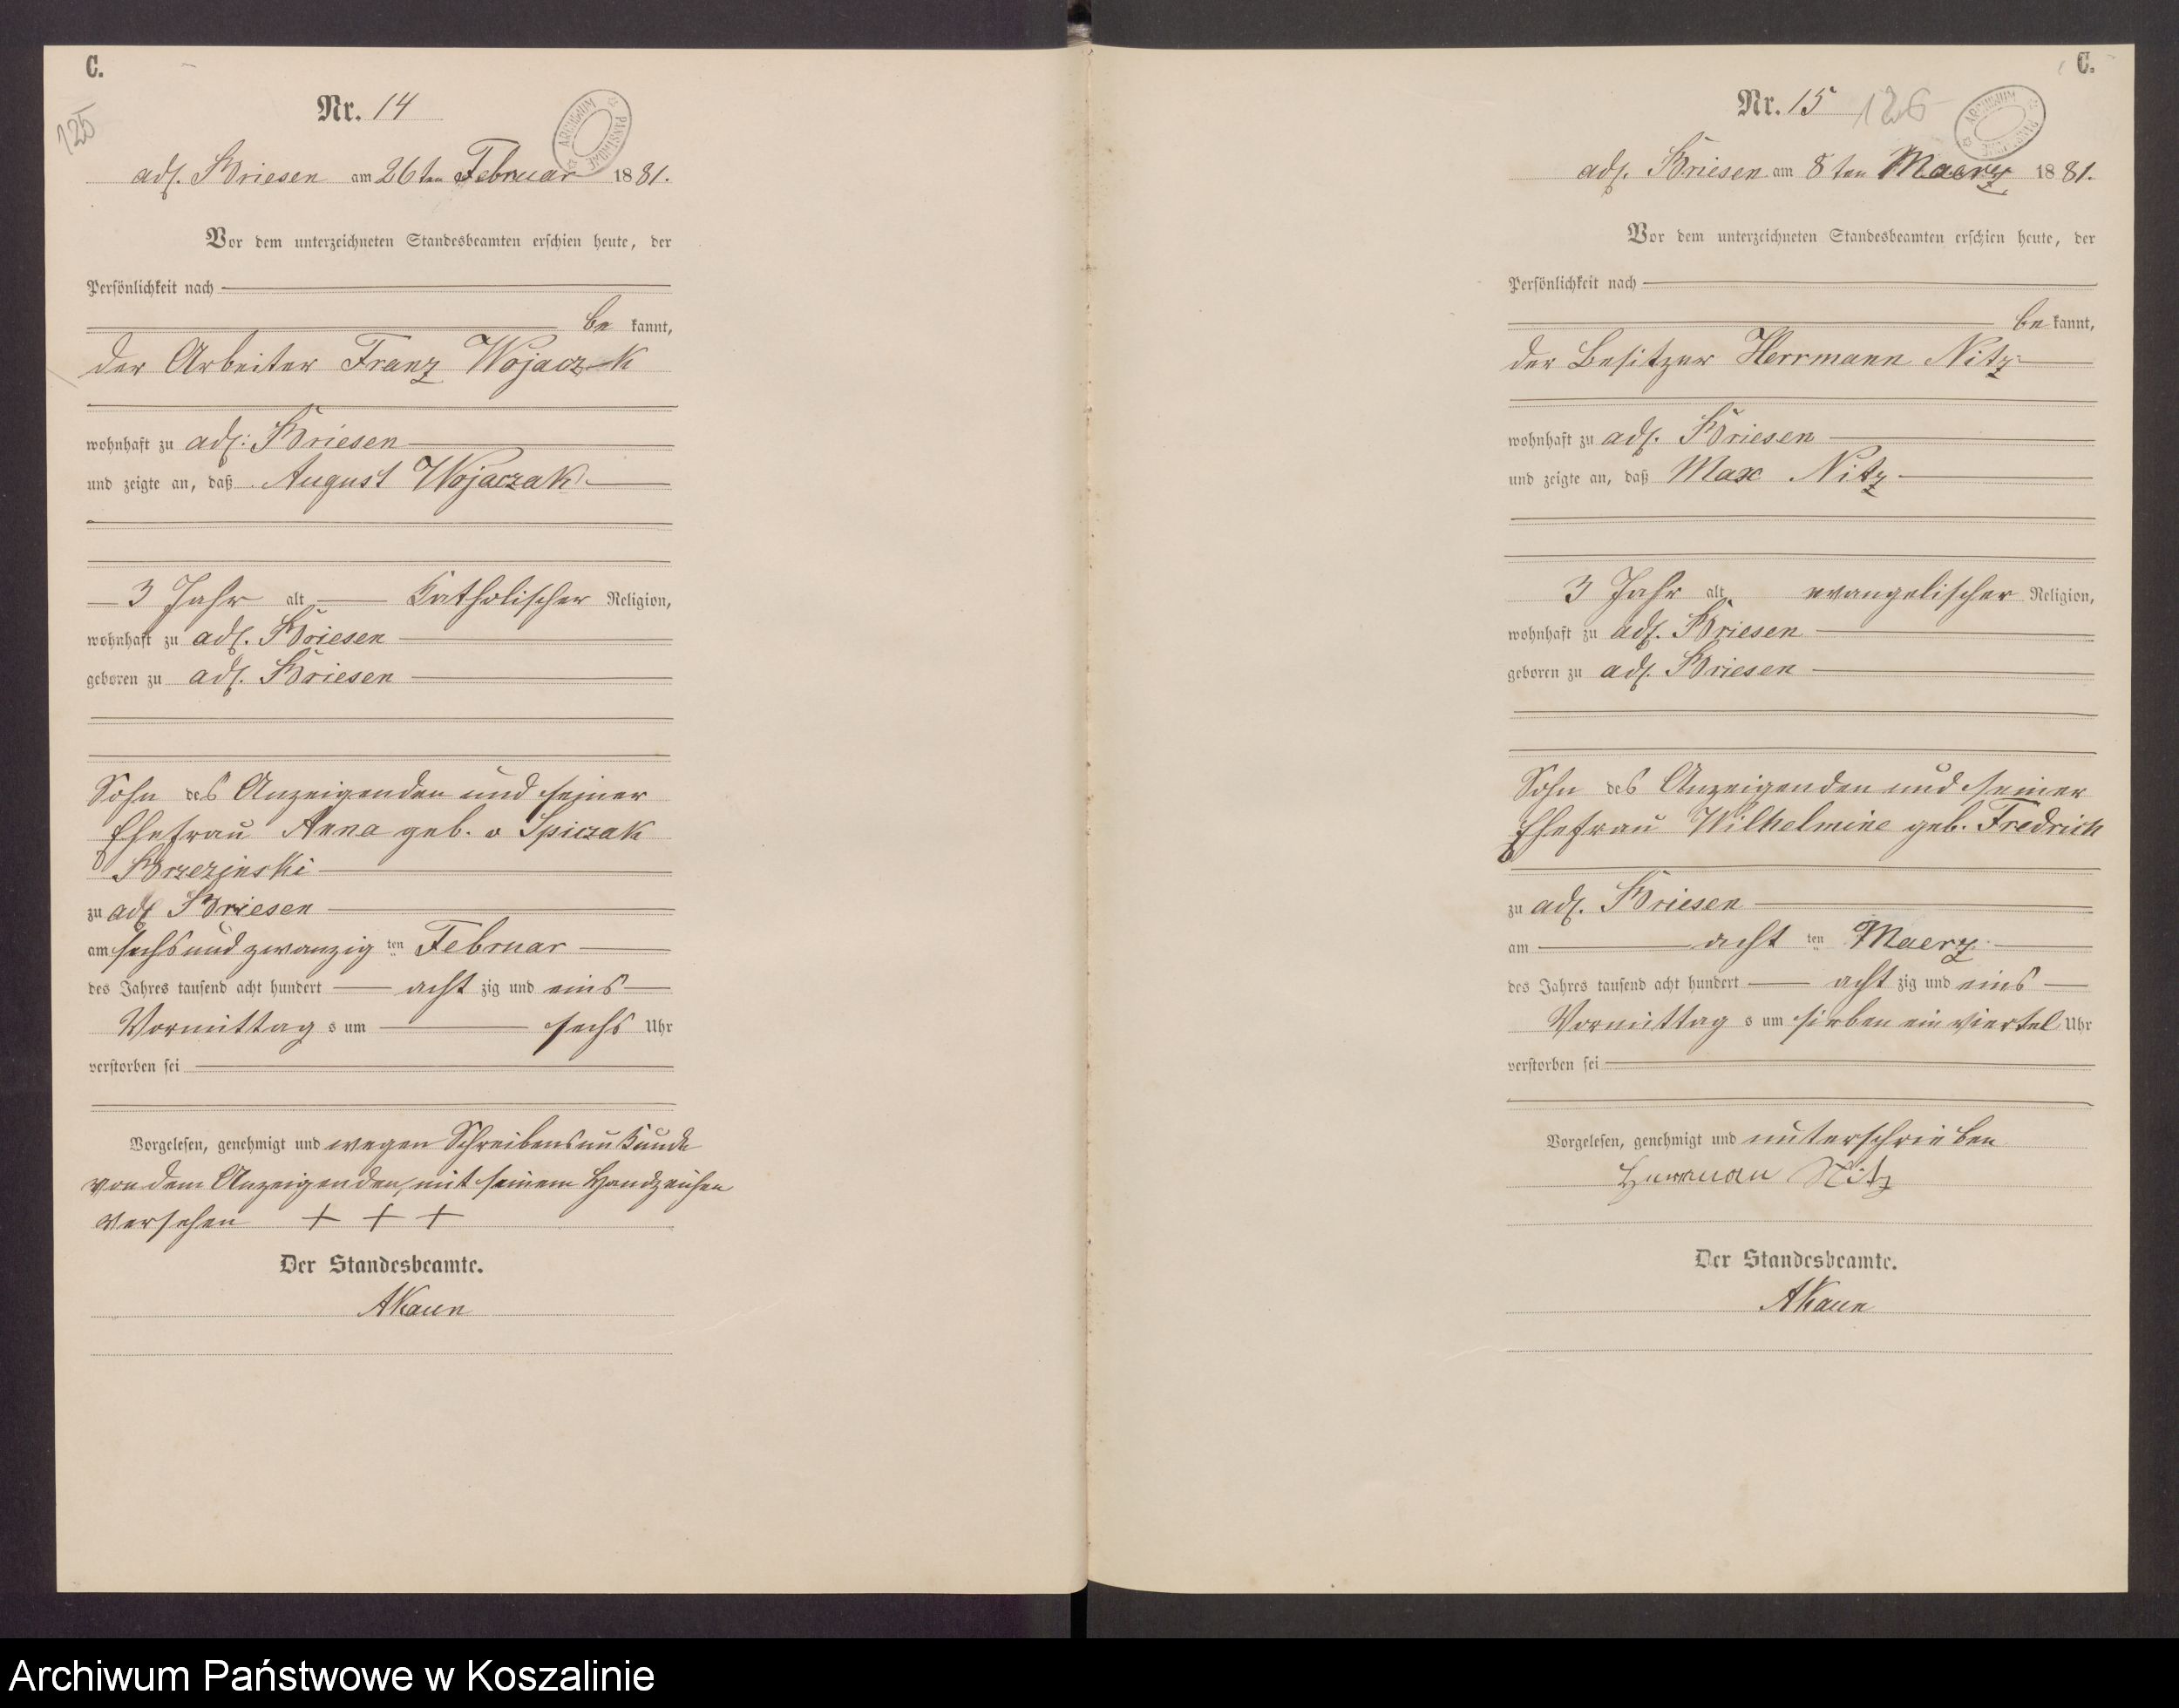 C.
125
Nr. 14
ARCHIWUM PAŃSTWOWE
adl. Briesen am 26ten Februar 1881.
Vor dem unterzeichneten Standesbeamten erschien heute, der
Persönlichkeit nach
be kannt,
der Arbeiter Franz Wojaczak
wohnhaft zu adl. Briesen
und zeigte an, daß August Wojaczak
3 Jahr alt Katholischer Religion,
wohnhaft zu adl. Briesen
geboren zu adl. Briesen
Sohn des Anzeigenden und seiner
Ehefrau Anna geb. v Spiczak
Brzezinski
zu adl Briesen
am sechsundzwanzig ten Februar
des Jahres tausend acht hundert acht zig und eins
Vormittag s um sechs Uhr
verstorben sei
Vorgelesen, genehmigt und wegen Schreibensunkunde
von dem Anzeigenden, mit seinem Handzeichen
versehen + + +
Der Standesbeamte.
AKaun
C.
Nr. 15 126
ARCHIWUM PAŃSTWOWE
adl. Briesen am 8ten Maerz 1881.
Vor dem unterzeichneten Standesbeamten erschien heute, der
Persönlichkeit nach
be kannt,
der Besitzer Herrmann Nitz
wohnhaft zu adl. Briesen
und zeigte an, daß Max Nitz
3 Jahr alt evangelischer Religion,
wohnhaft zu adl. Briesen
geboren zu adl. Briesen
Sohn des Anzeigenden und seiner
Ehefrau Wilhelmine geb. Fredrich
zu adl. Briesen
am acht ten Maerz
des Jahres tausend acht hundert acht zig und eins
Vormittag s um sieben ein viertel Uhr
verstorben sei
Vorgelesen, genehmigt und unterschrieben
Herrman Nitz
Der Standesbeamte.
AKaun
Archiwum Państwowe w Koszalinie